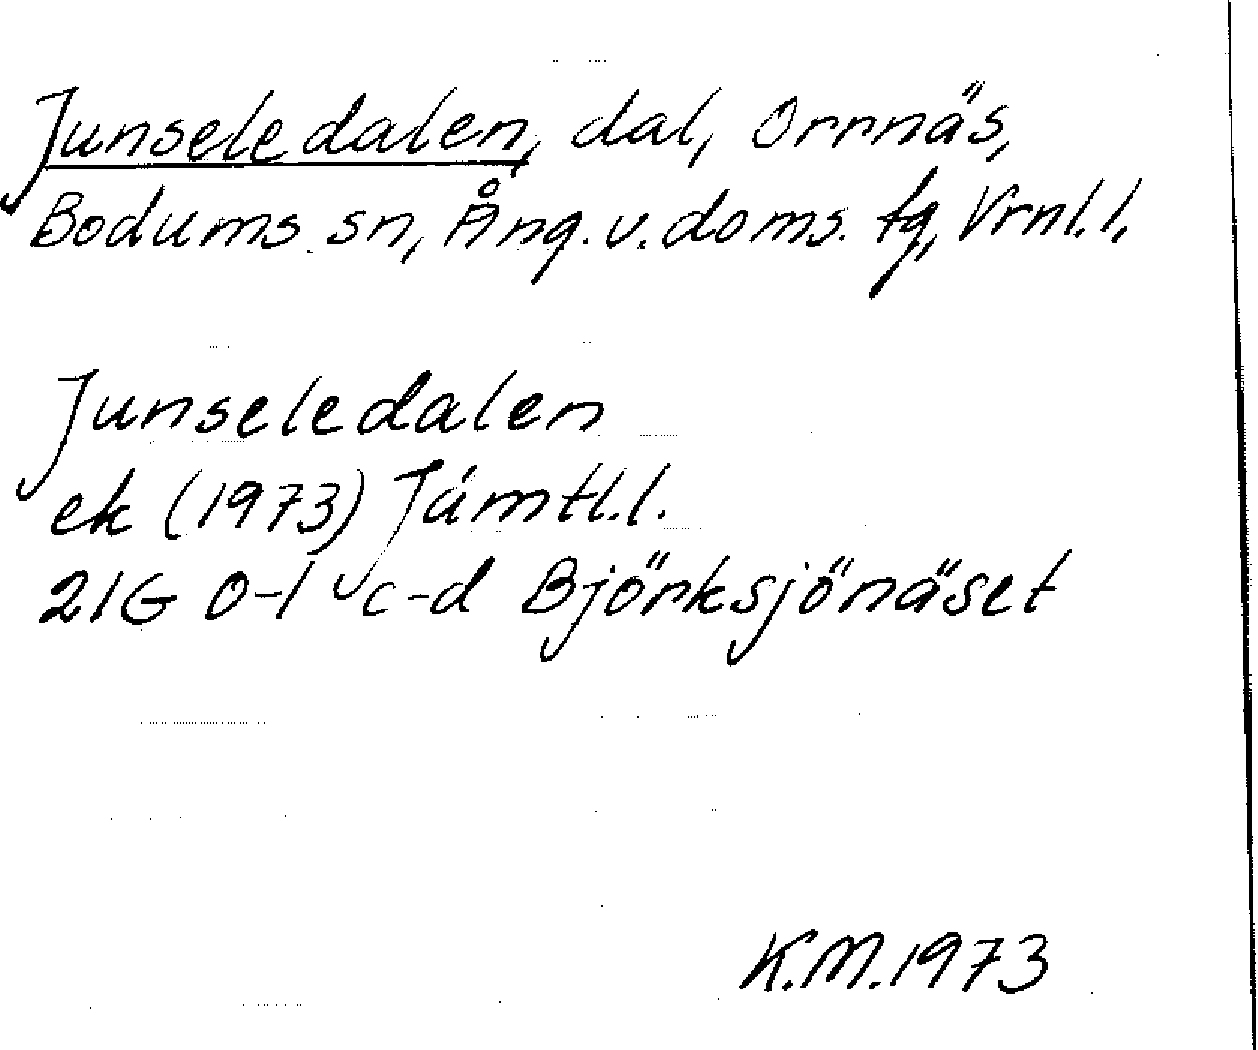 Junseledalen, dal, Orrnäs,
Bodums sn, Ång. v. doms. tg, Vrnl. l.
Junseledalen
ek (1973) Jämtl. l.
21G 0-1 c-d Björksjönäset
K.M. 1973